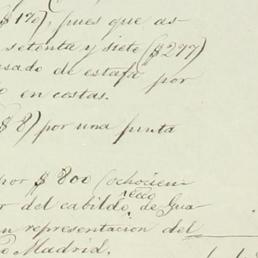 ($179), pues que as
setenta y siete ($277)
sado de estafa por
en costas.
$8) por una punta
por $800 (ochocien
recio
r del cabildo, de Gua
n representacion del
Madrid.